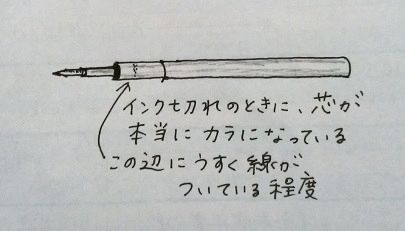 インク切れのときに、芯が
本当にカラになっている
この辺にうすく線が、
ついている程度